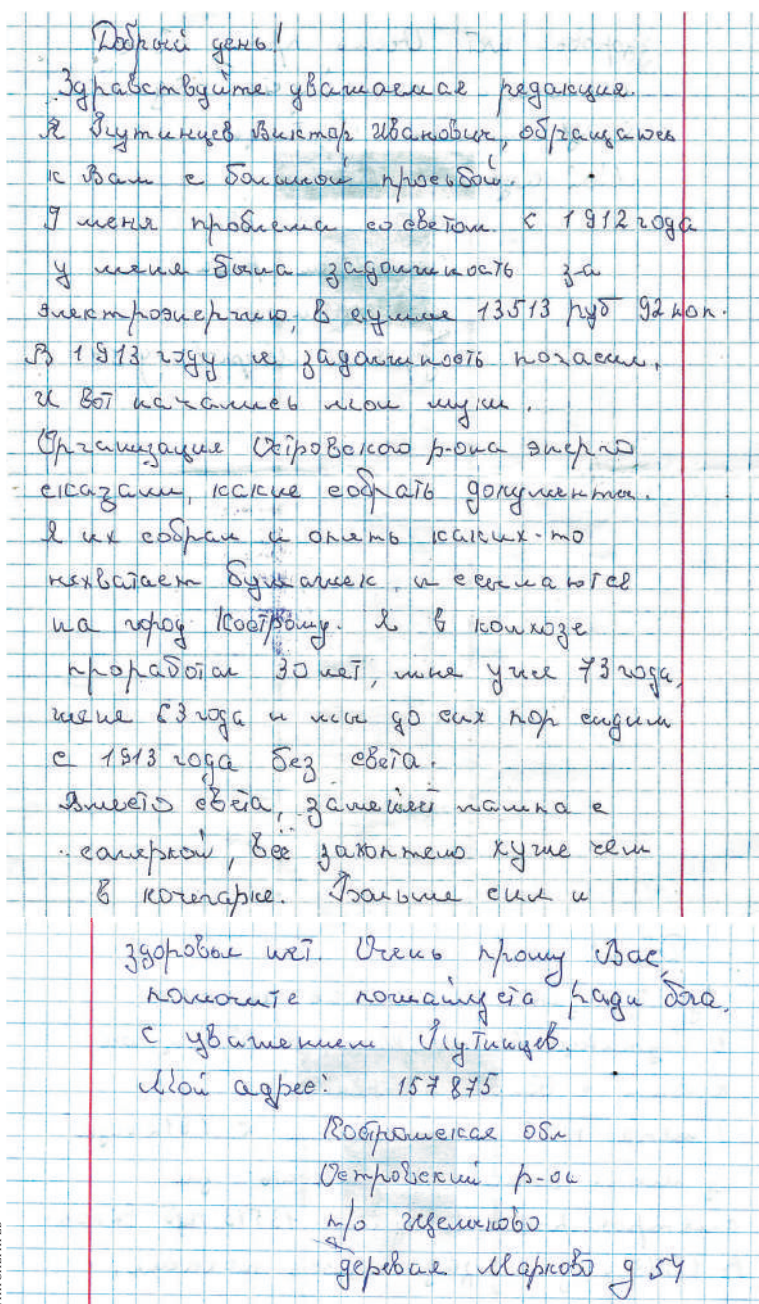 Добрый день!
Здравствуйте уважаемая редакция.
Я Кутинцев Виктор Иванович, обращаюсь
к Вам с большой просьбой.
У меня проблема со светом. С 1912 года
у меня была задолжность за
электроэнергию, в сумме 13513 руб 92 коп.
В 1913 году я задолжность погасил,
и вот начались мои муки.
Организация Островского р-она энерго
сказали, какие собрать документы.
Я их собрал и опять каких-то
нехватает бумажек, и ссылаются
на город Кострому. Я в колхозе
проработал 30 лет, мне уже 73 года,
жене 63 года и мы до сих пор сидим
с 1913 года без света.
Вместо света, лампа с
соляркой, всё закоптело хуже чем
в кочегарке. Больше сил и
здоровья нет. Очень прошу Вас,
помогите пожайлуста ради бога,
с уважением Кутинцев.
Мой адрес: 157875
Костромская обл
Островский р-он
п/о Щелыково
деревая Марково д 54